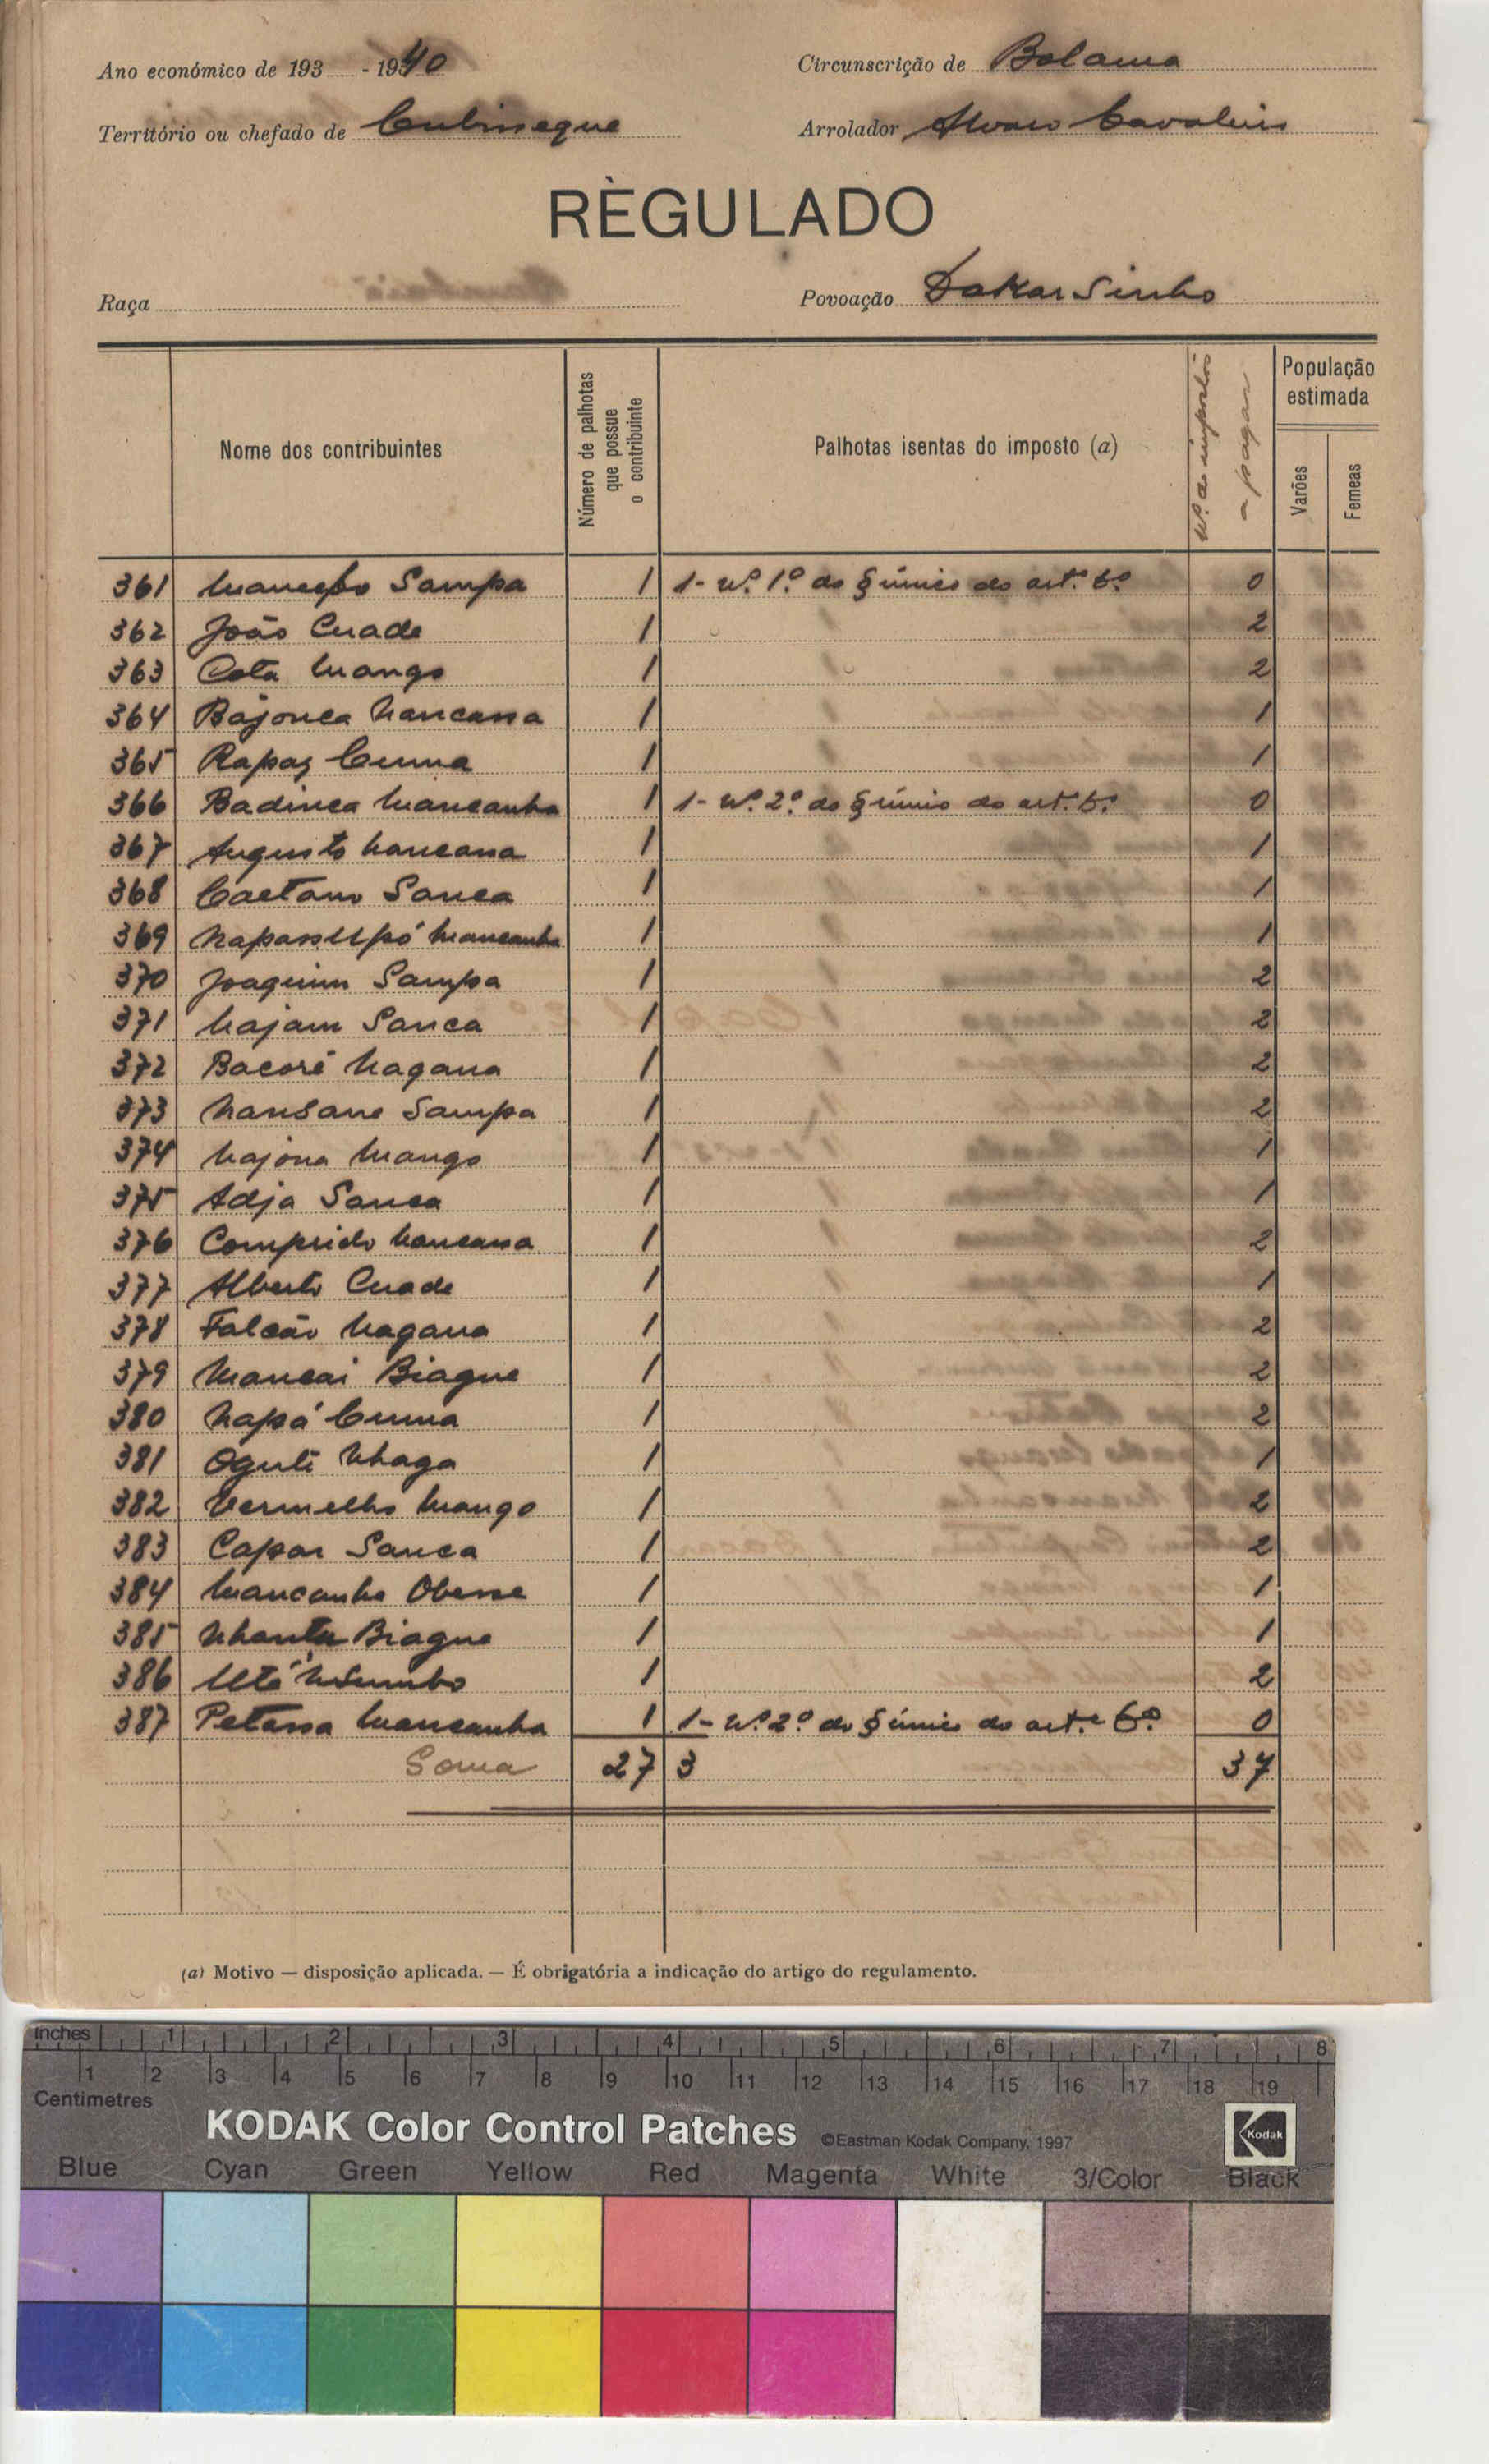 Ano económico de 193 - 1940 Circunscrição de Bolama
Território ou chefado de Cubisseque Arrolador Alvaro
RÈGULADO
Raça Povoação Dakar Sinho
Nome dos contribuintes
Número de palhotas que possue o contribuinte
Palhotas isentas do imposto (a)
Nº. de impostos a pagar
População estimada
Varões
Femeas
361 Sampa 1 1- Nº. 1º. do § único do art. 6º 0
362 João Cuade 1 2
363 Cota Mango 1 2
364 Bajonca Nancassa 1 1
365 Rapaz Cumna 1 1
366 Badinca Mancanha 1 1- Nº. 2º. do § único do art. 6º 0
367 Augusto Nancassa 1 1
368 Caetano Sanca 1 1
369 Mancanha 1 1
370 Joaquim Sampa 1 2
371 Najam Sanca 1 2
372 Bacoré Nagana 1 2
373 Nansane Sampa 1 2
374 Najona Mango 1 1
375 Adja Sanca 1 1
376 Comprido Nancassa 1 2
377 Alberto Cuade 1 1
378 Falcão Nagana 1 2
379 Mancai Biague 1 2
380 Napá Cumna 1 2
381 Oguli Nhaga 1 1
382 Vermelho Mango 1 2
383 Capar Sanca 1 2
384 Mancanha 1 1
385 Biague 1 1
386 1 2
387 Petassa Mancanha 1 1- Nº. 2º. do § único do art. 6º 0
Soma 27 3 37
(a) Motivo — disposição aplicada. — É obrigatória a indicação do artigo do regulamento.
Inches 1 2 3 4 5 6 7 8
1 2 3 4 5 6 7 8 9 10 11 12 13 14 15 16 17 18 19
Centimetres
KODAK Color Control Patches ©Eastman Kodak Company, 1997 Kodak
Blue Cyan Green Yellow Red Magenta White 3/Color Black